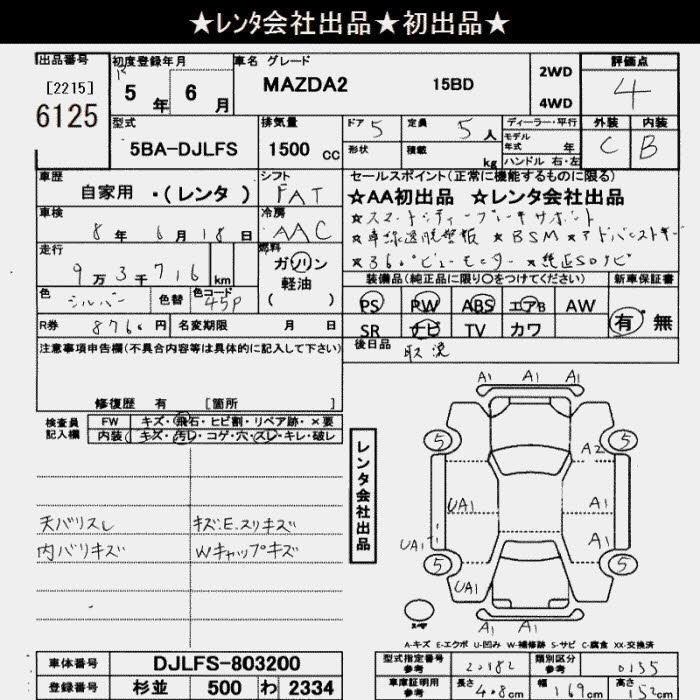 ★レンタ会社出品★初出品★
出品番号 初度登録年月 車名 グレード 評価点
[2215] 6125
5年 6月 MAZDA2 15BD 2WD 4WD 4
型式 排気量 ドア 5 定員 5人 ディーラー・平行 外装 内装
5BA-DJLFS 1500cc 形状 積載 kg モデル年式 年 C B
ハンドル 右・左
車歴 シフト セールスポイント(正常に機能するものに限る)
自家用 ・(レンタ) FAT ★AA初出品 ★レンタ会社出品
車検 冷房 ★スマートシティーブレーキサポート
8年 6月 18日 AAC ★BSM
走行 燃料 ★360°ビューモニター ★純正SDナビ
9万3千716km ガソリン 軽油 ( )
装備品(純正品に限り○をつけてください) 新車保証書
色 シルバー 色替 色コード 45P
PS PW ABS エアB AW 有・無
R券 8760円 名変期限 月 日 SR ナビ TV カワ
注意事項申告欄(不具合内容等は具体的に記入して下さい) 後日品 取説
修復歴 有 [箇所
検査員記入欄 FW キズ・飛石・ヒビ割・リペア跡・×要
内装 キズ・汚レ・コゲ・穴・スレ・キレ・破レ
レンタ会社出品
A1 A1 A1
5 5
A2
UA1 A1
UA1 A1
5 5
UA1 A1
A1 A1
天バリスレ キズ:E.スリキズ
内バリキズ Wキャップキズ
A-キズ E-エクボ U-凹み W-補修跡 S-サビ C-腐食 XX-交換済
車体番号 DJLFS-803200 型式指定番号 参考 20182 類別区分 参考 0135
登録番号 杉並 500 わ 2334 車庫証明用 参考 長さ 408cm 幅 169cm 高さ 152cm